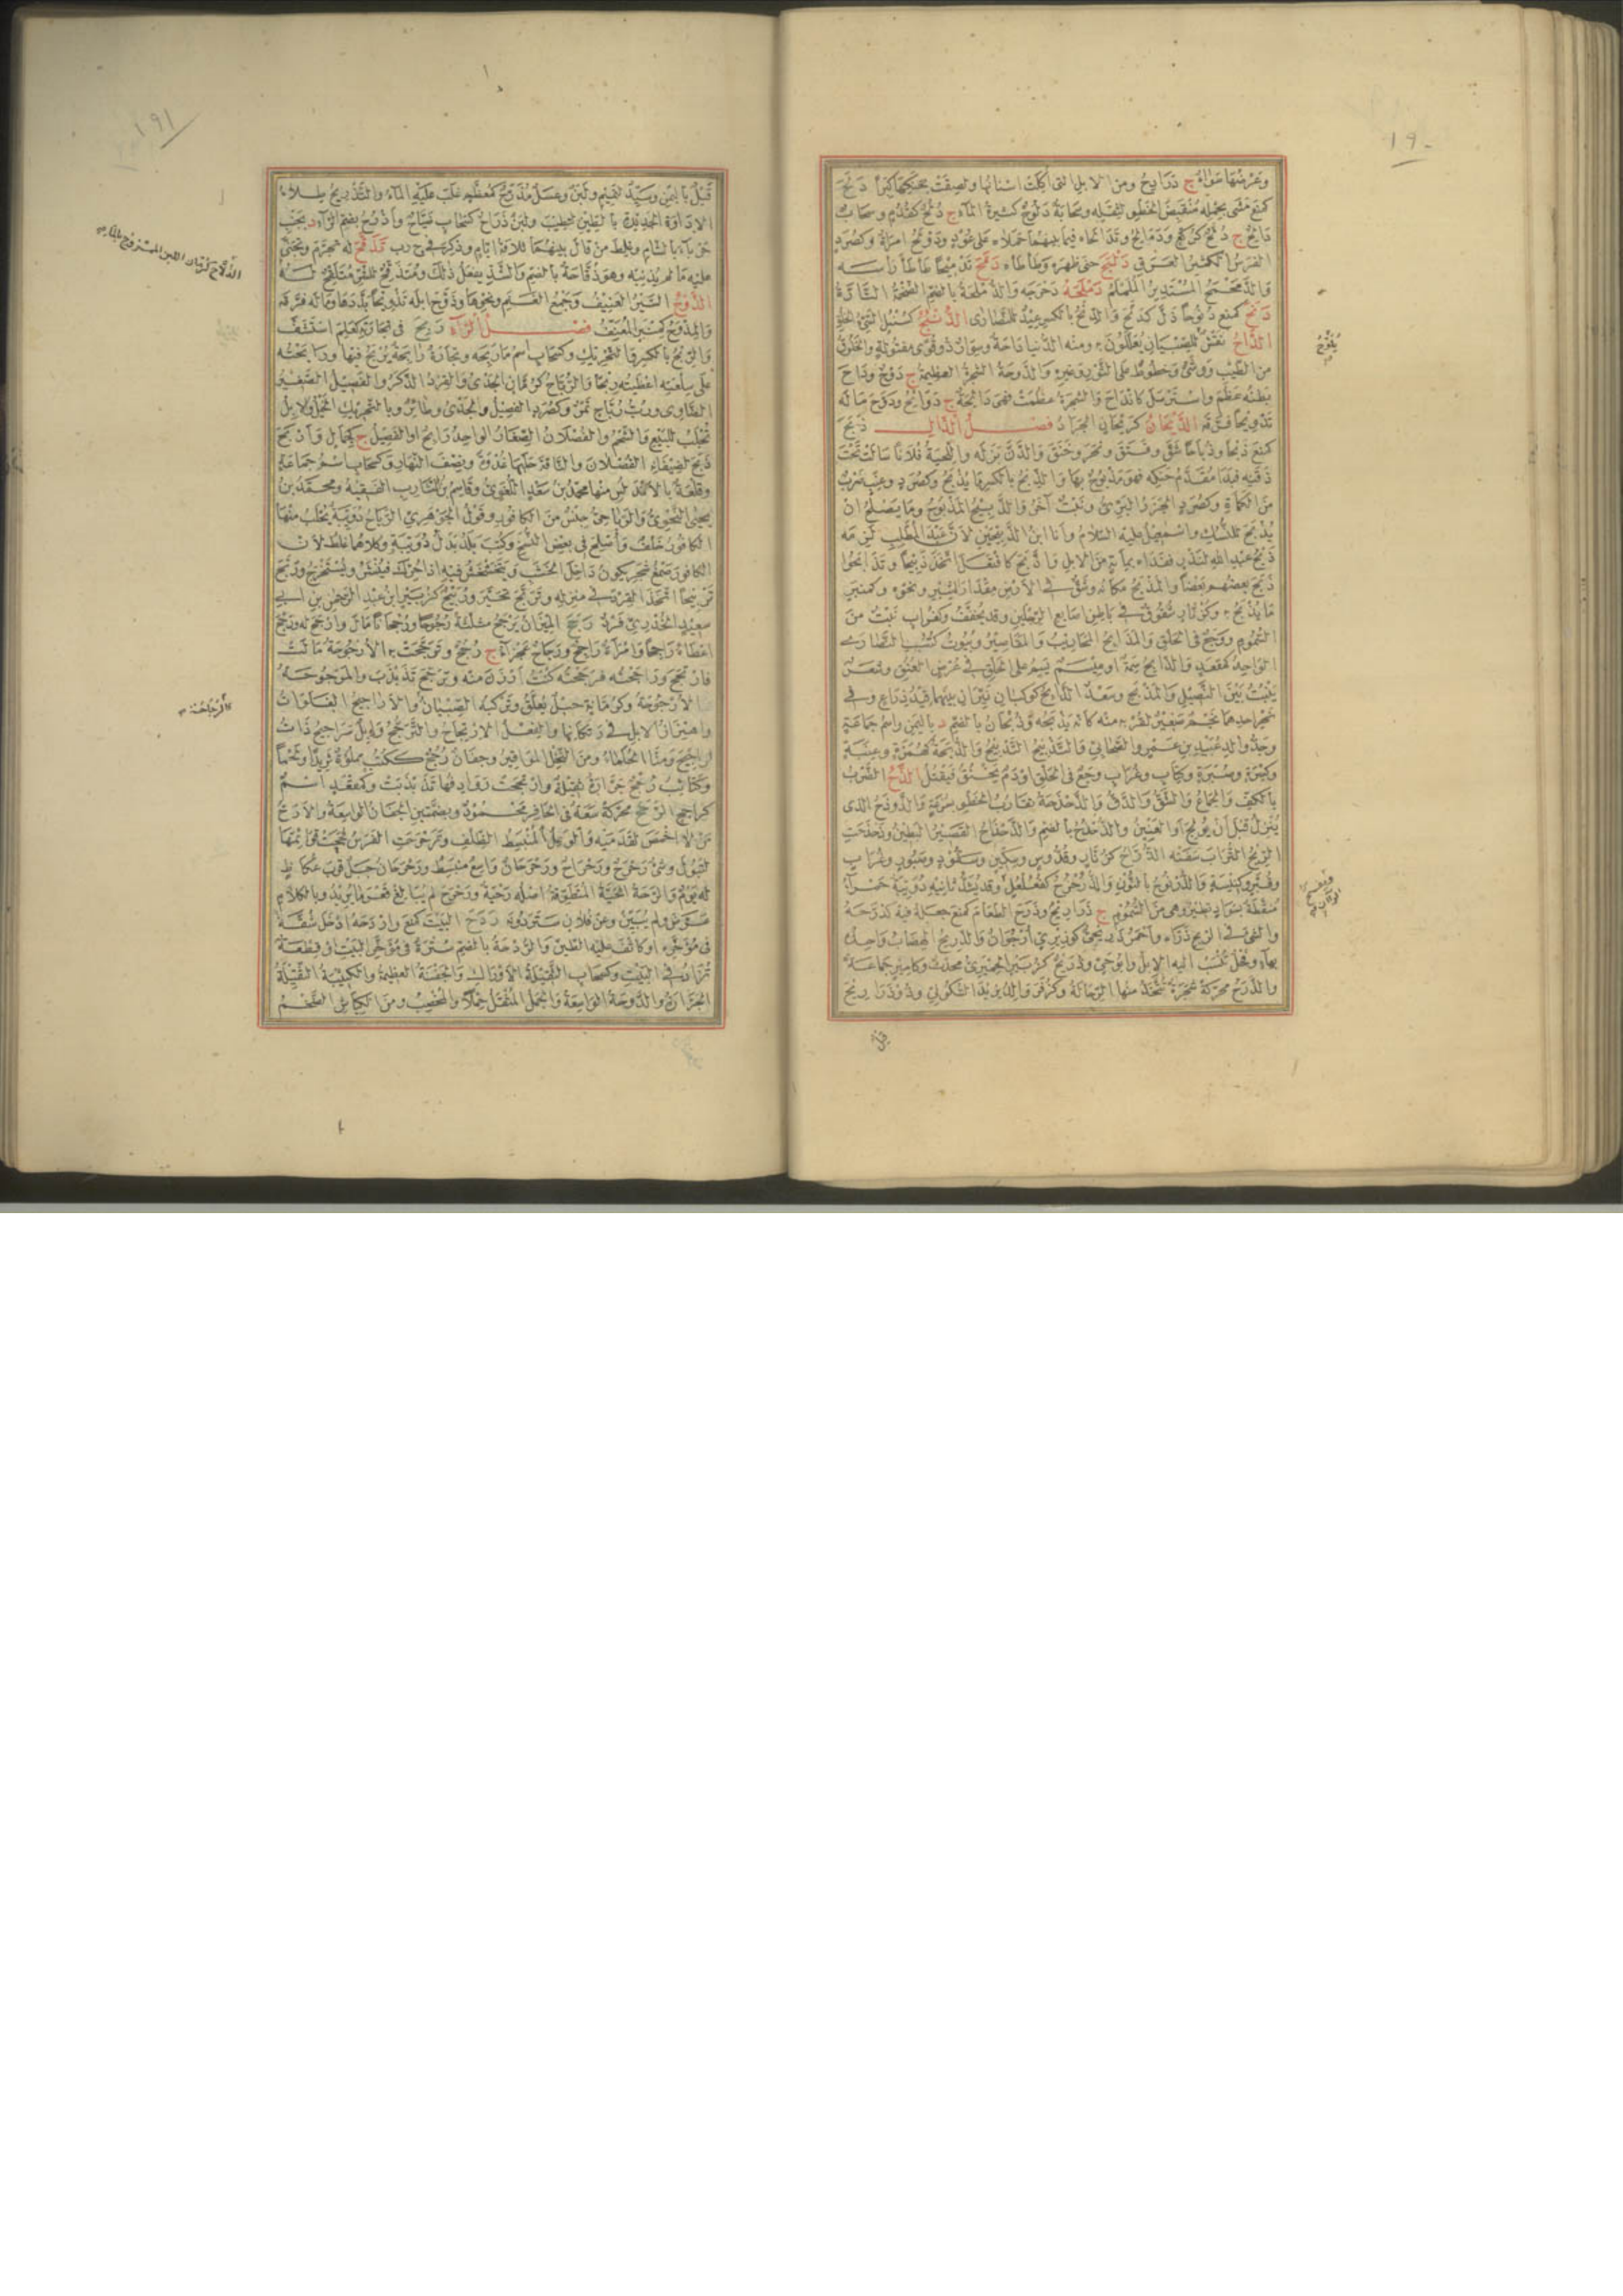 ١٩٠
وعرضها سواء ج ذرايح ومن الابل التى اكلت اسنانها ولصقت بحنكها كبرا دلح
كمنع مشى بحمله منقبض الخطو لثقله وسحابة دلوح كثيرة الماء ج دلح كقدم وسحاب
دالح ج دلح كركع ودوالح وتدالحاه فيما بينهما حملاه على عود ودولح امراة وكصرد
الفرس الكثير العرق دلبح حنى ظهره وطأطأه دمح تدميحا طأطأ رأسه
والدمحمح المستدير الململم دملحه دحرجه والدملحة بالضم الضخمة التارة
دنح كمنع دنوحا ذل كدنح والدنح بالكسر عيد للنصارى الدنبح كسنبل السئ الخلق
الداح نقش للصبيان يعللون به ومنه الدنيا داحة وسوار ذو قوى مفتولة والخلوق
من الطيب ووشى وخطوط على الثور وغيره والدوحة الشجرة العظيمة ج دوح وداح
بطنه عظم واسترسل كانداح والشجرة عظمت فهى دائحة ج دوائح ودوح ماله
تدويحا فرقه الديحان كريحان الجراد فصل الذال ذبح
كمنع ذبحا وذباحا شق وفتق ونحر وخنق والدن بزله واللحية فلانا سالت تحت
ذقنه فبدا مقدم حنكه فهو مذبوح بها والذبح بالكسر ما يذبح وكصرد وعنب ضرب
من الكمأة وكصرد الجزر البرى ونبت آخر والذبيح المذبوح وما يصلح ان
يذبح للنسك واسمعيل عليه السلام وانا ابن الذبيحين لان عبد المطلب لزمه
ذبح عبد الله لنذر ففداه بمأئة من الابل واذبح كافتعل اتخذ ذبيحا وتذابحوا
ذبح بعضهم بعضا والمذبح مكانه وشق فى الارض مقدار الشبر ونحوه وكمنبر
ما يذبح به وكزنار شقوق فى باطن اصابع الرجلين وقد يخفف وكغراب نبت من
السموم ووجع فى الحلق والمذابح المحاريب والمقاصير وبيوت كتب النصارى
الواحد كمقعد والذابح سمة او ميسم يسم على الحلق فى عرض العنق وشعر
ينبت بين النصيل والمذبح وسعد الذابح كوكبان نيران بينهما قيد ذراع وفى
نحر احدهما نجم صغير لقربه منه كأنه يذبحه وذبحان بالضم د باليمن واسم جماعة
وجد والد عبيد بن عمير والصحابى والتذبيح التدبيح والذبحة كهمزة وعنبة
وكسرة وصبرة وكتاب وغراب وجع فى الحلق او دم يخنق فيقتل الذح الضرب
بالكف والجماع والشق والدق والذحذحة تقارب الخطو بسرعة والذوذح الذى
ينزل قبل ان يولج او العنين والذحذح بالضم والذحذاح القصير البطين وذحذحت
الريح التراب سفته الذراح كزنار وقدوس وسكين وسفود وصبور وغراب
وسكر وكنيسة والذرنوح بالنون والذرحرح كفعلعل وقد يشدد ثانيه دويبة حمراء
منقطة بسواد تطير وهى من السموم ج ذراريح وذرح الطعام كمنع جعله فيه كذرحه
والشئ فى الريح ذراه واحمر ذريحى كوزيرى ارجوان والذريح الهضاب واحده
بهاء وفحل تنسب اليه الابل وابو حى وذريح كزبير الحميرى محدث وكامير جماعة
والذرح محركة شجر تتخذ منها الرحالة وكزفر والد يزيد السكونى وذو ذراريح
قيل
يقوح
١٩١
قيل باليمن وسيد لتميم ولبن وعسل مذرح كمعظم غلب عليه الماء والتذريح طلاء
الاداوة الجديدة بالطين لتطيب ولبن ذراح كسحاب ضياح واذرح بضم الراء د بجنب
جرباء بالشام وغلط من قال بينهما ثلاثة ايام وذكر فى ج ر ب تذقح له تجرم وتجنى
عليه ما لم يذنبه وهو ذقاحة بالضم والتشديد يفعل ذلك ومتذقح للشر متلقح له
الذوح السير العنيف وجمع الغنم ونحوها وذوح ابله تذويحا بددها وماله فرقه
والمذوح كمنبر المعنف فصل الراء ربح فى تجارته كعلم استشف
والربح بالكسر والتحريك وكسحاب اسم ما ربحه وتجارة رابحة يربح فيها ورابحته
على سلعته اعطيته ربحا والرباح كرمان الجدى والقرد الذكر والفصيل الصغير
الضاوى وزب رباح تمر وكصرد الفصيل والجدى وطائر وبالتحريك الخيل والابل
تجلب للبيع والشحم والفصلان الصغار الواحد رابح او الفصيل ج كجمال واربح
ذبح لضيفانه الفصلان والناقة حلبها غدوة ونصف النهار وكسحاب اسم جماعة
وقلعة بالاندلس منها محمد بن سعد اللغوى وقاسم بن الشارب الفقيه ومحمد بن
يحيى النحوى والرباحى جنس من الكافور وقول الجوهرى الرباح دويبة يجلب منها
الكافور خلف واصلح فى بعض النسخ وكتب بلد بدل دويبة وكلاهما غلط لان
الكافور صمغ شجر يكون داخل الخشب ويتخشخش فيه اذا حرك فينشر ويستخرج وربح
تربيحا اتخذ القرد فى منزله وتربح تحير وربيح كزبير ابن عبد الرحمن بن ابى
سعيد الخدرى فرد رجح الميزان يرجح مثلثة رجوحا ورجحانا مال وارجح له ورجح
اعطاه راجحا وامرأة راجح ورجاح عجزاء ج رجح وترجحت به الارجوحة مالت
فارتجح وراجحته فرجحته كنت ارزن منه وترجح تذبذب والمرجوحة
الارجوحة وكرمانة حبل يعلق ويركبه الصبيان والاراجيح الفلوات
واهتزاز الابل فى رتكانها والفعل الارتجاح والترجح وابل مراجيح ذات
اراجيح ومنا الحلماء ومن النخل المواقير وجفان رجح ككتب مملوة ثريدا ولحما
وكتائب رجح جرارة ثقيلة وارتجحت روادفها تذبذبت وكمقعد اسم
كراجح الرحح محركة سعة فى الحافر محمود وبضمتين الجفان الواسعة والارح
من لا اخمص لقدميه والوعل المنبسط الظلف وترحرحت الفرس فججت قوائمها
لتبول وشئ رحرح ورحراح ورحرحان واسع منبسط ورحرحان جبل قرب عكاظ
له يوم والرحة الحية المتطوقة اصله رحية ورحرح لم يبالغ قعر ما يريد وبالكلام
عرض ولم يبين وعن فلان ستر دونه ردح البيت كمنع واردحه ادخل شقة
فى مؤخره او كاثف عليه الطين والردحة بالضم سترة فى مؤخر البيت او قطعة
تزاد فى البيت وكسحاب الثقيلة الاوراك والجفنة العظيمة والكتيبة الثقيلة
الجرارة والدوحة الواسعة والجمل المثقل حملا والمخصب ومن الكباش الضخم